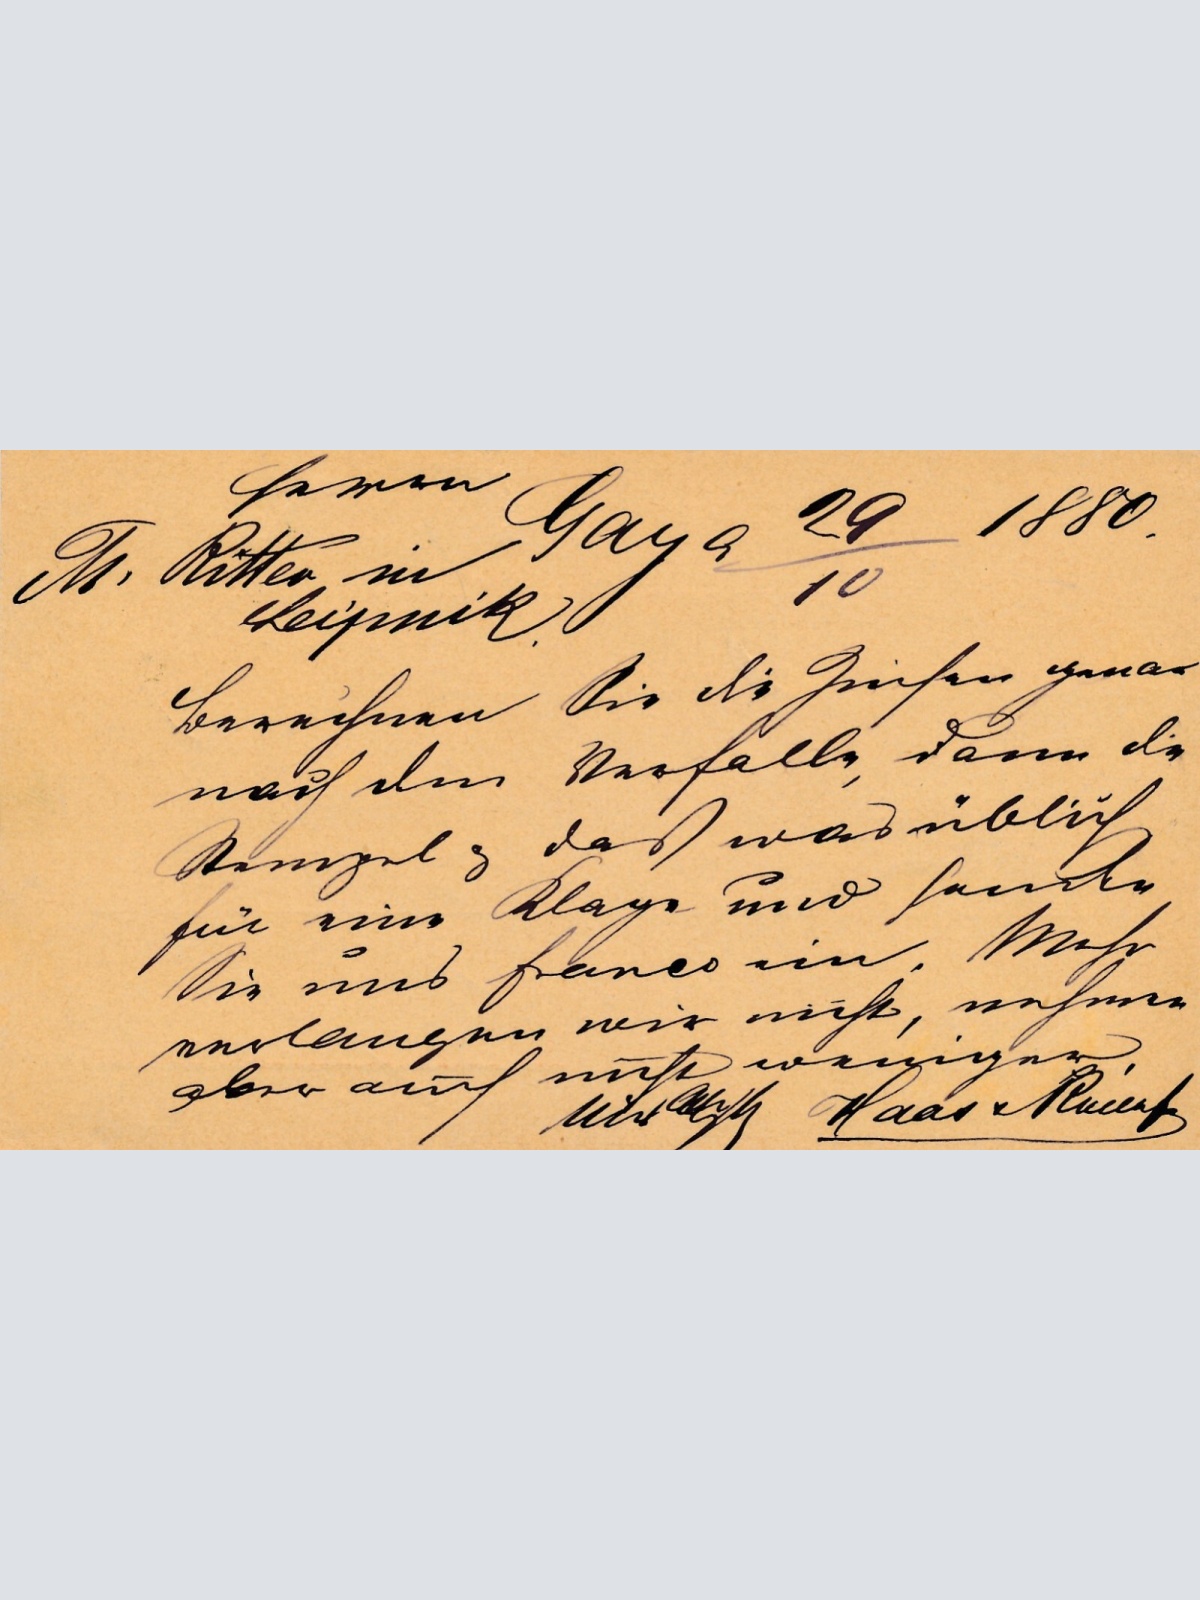 Herrn
Gaya 29/10 1880.
M. Ritter in
Leipnik.
Berechnen Sie die Zinsen genau
nach dem Verfalle, dann die
Stempel & das was üblich
für eine Klage und sende
Sie uns franco ein. Mehr
verlangen wir nicht, nehmen
aber auch nicht weniger.
Haas &